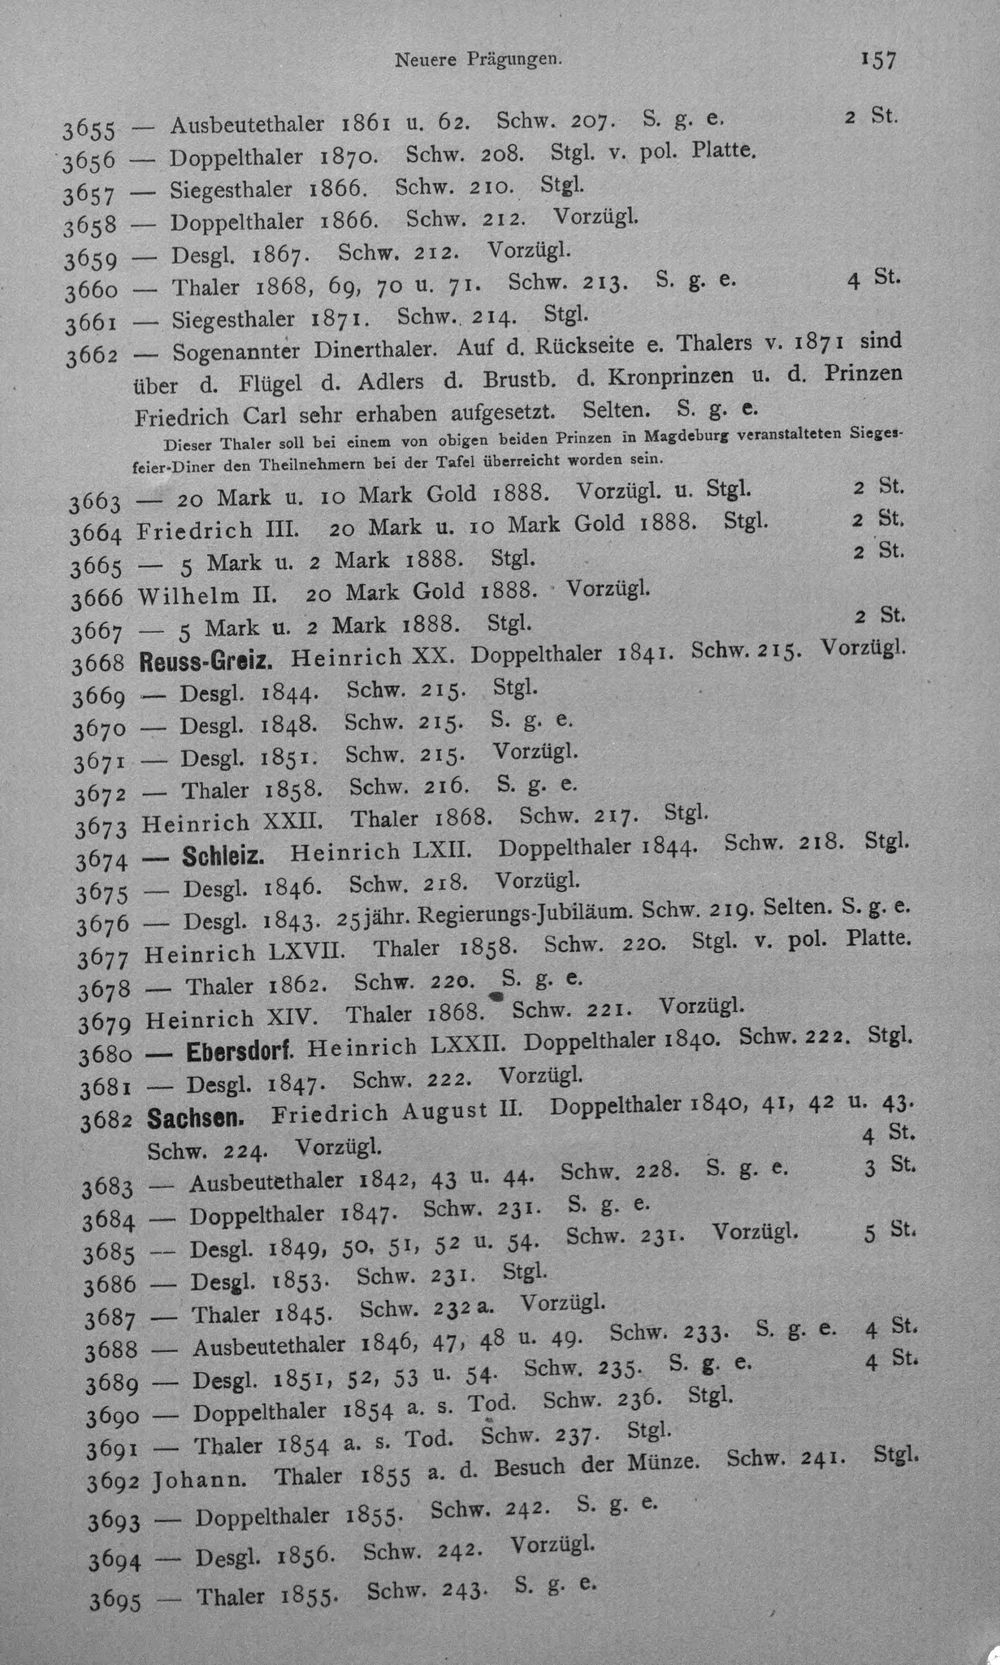 Neuere Prägungen. 157
3655 — Ausbeutethaler 1861 u. 62. Schw. 207. S. g. e. 2 St.
3656 — Doppelthaler 1870. Schw. 208. Stgl. v. pol. Platte.
3657 — Siegesthaler 1866. Schw. 210. Stgl.
3658 — Doppelthaler 1866. Schw. 212. Vorzügl.
3659 — Desgl. 1867. Schw. 212. Vorzügl.
3660 — Thaler 1868, 69, 70 u. 71. Schw. 213. S. g. e. 4 St.
3661 — Siegesthaler 1871. Schw. 214. Stgl.
3662 — Sogenannter Dinerthaler. Auf d. Rückseite e. Thalers v. 1871 sind
über d. Flügel d. Adlers d. Brustb. d. Kronprinzen u. d. Prinzen
Friedrich Carl sehr erhaben aufgesetzt. Selten. S. g. e.
Dieser Thaler soll bei einem von obigen beiden Prinzen in Magdeburg veranstalteten Sieges-
feier-Diner den Theilnehmern bei der Tafel überreicht worden sein.
3663 — 20 Mark u. 10 Mark Gold 1888. Vorzügl. u. Stgl. 2 St.
3664 Friedrich III. 20 Mark u. 10 Mark Gold 1888. Stgl. 2 St.
3665 — 5 Mark u. 2 Mark 1888. Stgl. 2 St.
3666 Wilhelm II. 20 Mark Gold 1888. Vorzügl.
3667 — 5 Mark u. 2 Mark 1888. Stgl. 2 St.
3668 Reuss-Greiz. Heinrich XX. Doppelthaler 1841. Schw. 215. Vorzügl.
3669 — Desgl. 1844. Schw. 215. Stgl.
3670 — Desgl. 1848. Schw. 215. S. g. e.
3671 — Desgl. 1851. Schw. 215. Vorzügl.
3672 — Thaler 1858. Schw. 216. S. g. e.
3673 Heinrich XXII. Thaler 1868. Schw. 217. Stgl.
3674 — Schleiz. Heinrich LXII. Doppelthaler 1844. Schw. 218. Stgl.
3675 — Desgl. 1846. Schw. 218. Vorzügl.
3676 — Desgl. 1843. 25jähr. Regierungs-Jubiläum. Schw. 219. Selten. S. g. e.
3677 Heinrich LXVII. Thaler 1858. Schw. 220. Stgl. v. pol. Platte.
3678 — Thaler 1862. Schw. 220. S. g. e.
3679 Heinrich XIV. Thaler 1868. Schw. 221. Vorzügl.
3680 — Ebersdorf. Heinrich LXXII. Doppelthaler 1840. Schw. 222. Stgl.
3681 — Desgl. 1847. Schw. 222. Vorzügl.
3682 Sachsen. Friedrich August II. Doppelthaler 1840, 41, 42 u. 43.
Schw. 224. Vorzügl. 4 St.
3683 — Ausbeutethaler 1842, 43 u. 44. Schw. 228. S. g. e. 3 St.
3684 — Doppelthaler 1847. Schw. 231. S. g. e.
3685 — Desgl. 1849, 50, 51, 52 u. 54. Schw. 231. Vorzügl. 5 St.
3686 — Desgl. 1853. Schw. 231. Stgl.
3687 — Thaler 1845. Schw. 232 a. Vorzügl.
3688 — Ausbeutethaler 1846, 47, 48 u. 49. Schw. 233. S. g. e. 4 St.
3689 — Desgl. 1851, 52, 53 u. 54. Schw. 235. S. g. e. 4 St.
3690 — Doppelthaler 1854 a. s. Tod. Schw. 236. Stgl.
3691 — Thaler 1854 a. s. Tod. Schw. 237. Stgl.
3692 Johann. Thaler 1855 a. d. Besuch der Münze. Schw. 241. Stgl.
3693 — Doppelthaler 1855. Schw. 242. S. g. e.
3694 — Desgl. 1856. Schw. 242. Vorzügl.
3695 — Thaler 1855. Schw. 243. S. g. e.